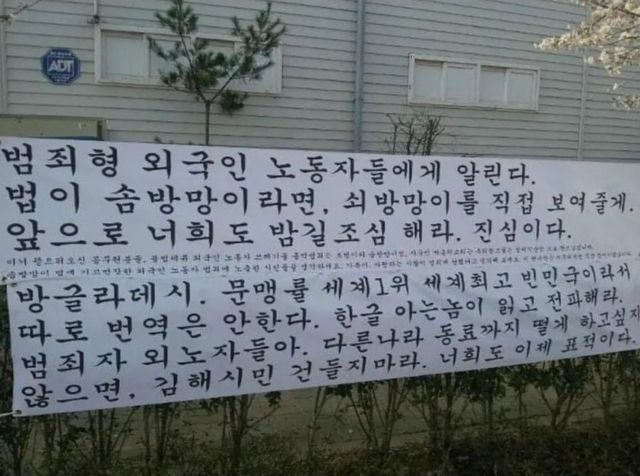 ADT
범죄형 외국인 노동자들에게 알린다.
법이 솜방망이라면, 쇠방망이를 직접 보여줄게.
앞으로 너희도 밤길조심 해라. 진심이다.
외국인 노동자
방글라데시. 문맹률 세계1위 세계최고 빈민국이라서
따로 번역은 안한다. 한글 아는놈이 읽고 전파해라.
범죄자 외노자들아. 다른나라 동료까지 떨게 하고싶지
않으면, 김해시민 건들지마라. 너희도 이제 표적이다.